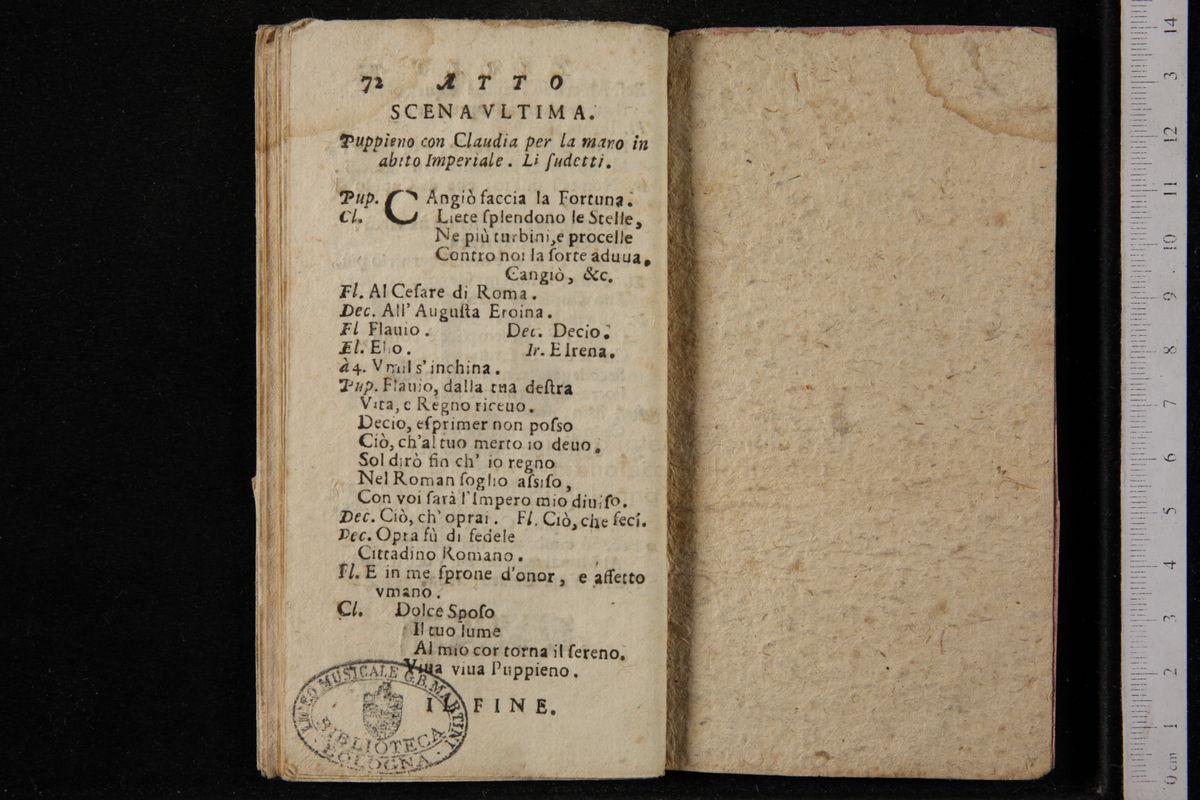 72 ATTO
SCENA VLTIMA.
Puppieno con Claudia per la mano in
abito Imperiale. Li ſudetti.
Pup. CAngiò faccia la Fortuna.
Cl. Liete ſplendono le Stelle,
Ne più turbini, e procelle
Contro noi la ſorte aduua.
Cangiò, &c.
Fl. Al Ceſare di Roma.
Dec. All' Auguſta Eroina.
Fl Flauio. Dec. Decio.
El. Elio. Ir. E Irena.
à 4. Vmil s' inchina.
Pup. Flauio, dalla tua deſtra
Vita, e Regno riceuo.
Decio, eſprimer non poſſo
Ciò, ch'al tuo merto io deuo.
Sol dirò fin ch' io regno
Nel Roman ſoglio aſsiſo,
Con voi ſarà l'Impero mio diuiſo.
Dec. Ciò, ch' oprai. Fl. Ciò, che feci.
Dec. Opra fù di fedele
Cittadino Romano.
Fl. E in me ſprone d'onor, e affetto
vmano.
Cl. Dolce Spoſo
Il tuo lume
Al mio cor torna il ſereno.
Viua viua Puppieno.
IL FINE.
LICEO MUSICALE G.B. MARTINI
BIBLIOTECA
BOLOGNA
14
3
12
11
10
9
8
7
6
5
4
3
2
1
0 cm